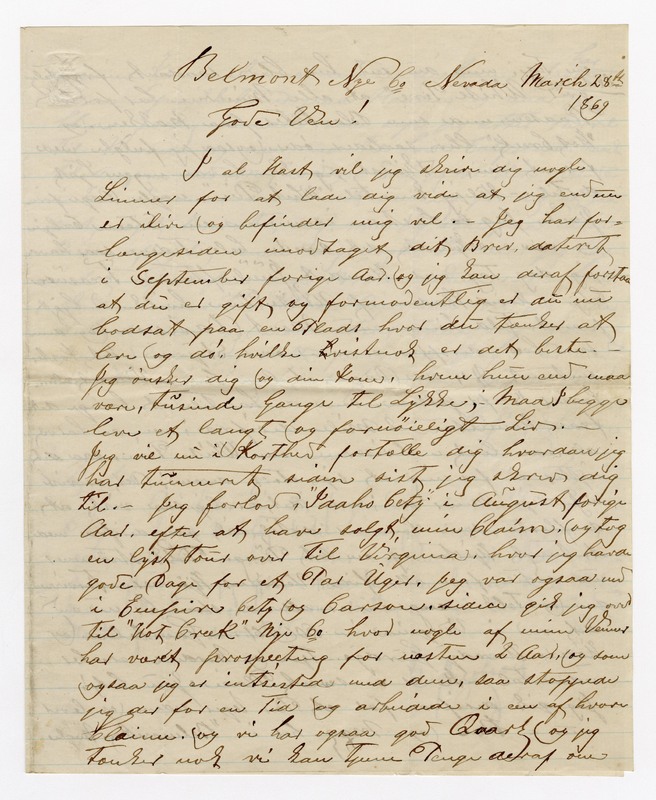 Belmont Nye Co Nevada March 28th
1869
Gode Ven!
I al Hast vil jeg skrive dig nogle
Linner for at lade dig vide at jeg endnu
er ilive (og befinder mig vel. – Jeg har for=
længesiden imodtaget dit Brev, dateret
i September forige Aar. og jeg kan deraf forstaa
at du er gift og formodentlig er du nu
bodsat paa en Plads hvor du tænker at
leve (og dö. hvilke Kvistnok er det beste –
Jeg önsker dig (og din Kone, hvem hun end maa
være, tusinde Gange til Lykke; – Maa I begge
leve et langt (og fornöieligt Liv. –
Jeg vil nu i Korthed fortelle dig hvordan jeg
har tumeret siden sist jeg skrev dig
til. – Jeg forlod "Idaho City" i August forige
Aar. efter at have solgt min Claim. (og tog
en lyst tour over til Virginia, hvor jeg havde
gode Dage for et Par Uger, jeg var ogsaa ned
i Empire City (og Carson. siden gik jeg over
til "Hot Creek" Nye Co hvor nogle af mine Venner
har været prospecting for næsten 2 Aar, (og som
ogsaa jeg er intrested med dem, saa stoppede
jeg der for en Tid (og arbeidede i en af hvore
Claims. (og vi har ogsaa god Quartz (og jeg
tænker nok vi kan tjene Penge deraf om